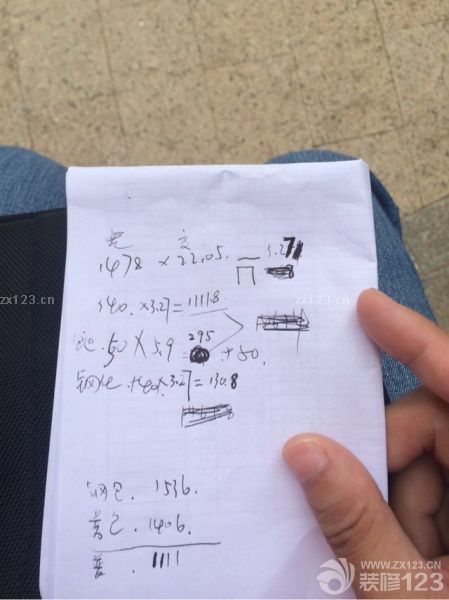 宽 高
1.478 × 22.05. = 3.271
340. ×3.27=1111.8
.50×5.9=295 +50.
钢化 +40×3.27=130.8
钢化. 1536.
1406.
普. 1111
zx123.cn
zx123.cn
zx123.cn
WWW.ZX123.CN
装修123